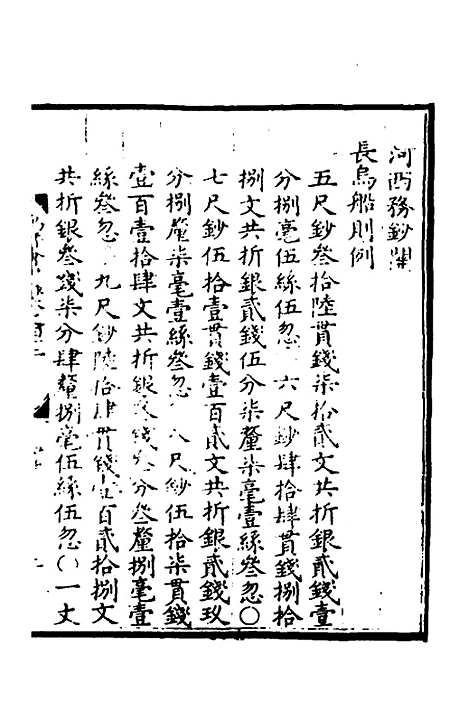 河西務鈔關
長鳥船則例
五尺鈔叄拾陸貫錢柒拾貳文共折銀貳錢壹
分捌毫伍絲伍忽 六尺鈔肆拾肆貫錢捌拾
捌文共折銀貳錢伍分柒釐柒毫壹絲叄忽〇
七尺鈔伍拾壹貫錢壹百貳文共折銀貳錢玖
分捌釐柒毫壹絲叄忽 八尺鈔伍拾柒貫錢
壹百壹拾肆文共折銀叄錢叄分叄釐捌毫壹
絲叄忽 九尺鈔陸拾肆貫錢壹百貳拾捌文
共折銀叄錢柒分肆釐捌毫伍絲伍忽〇一丈